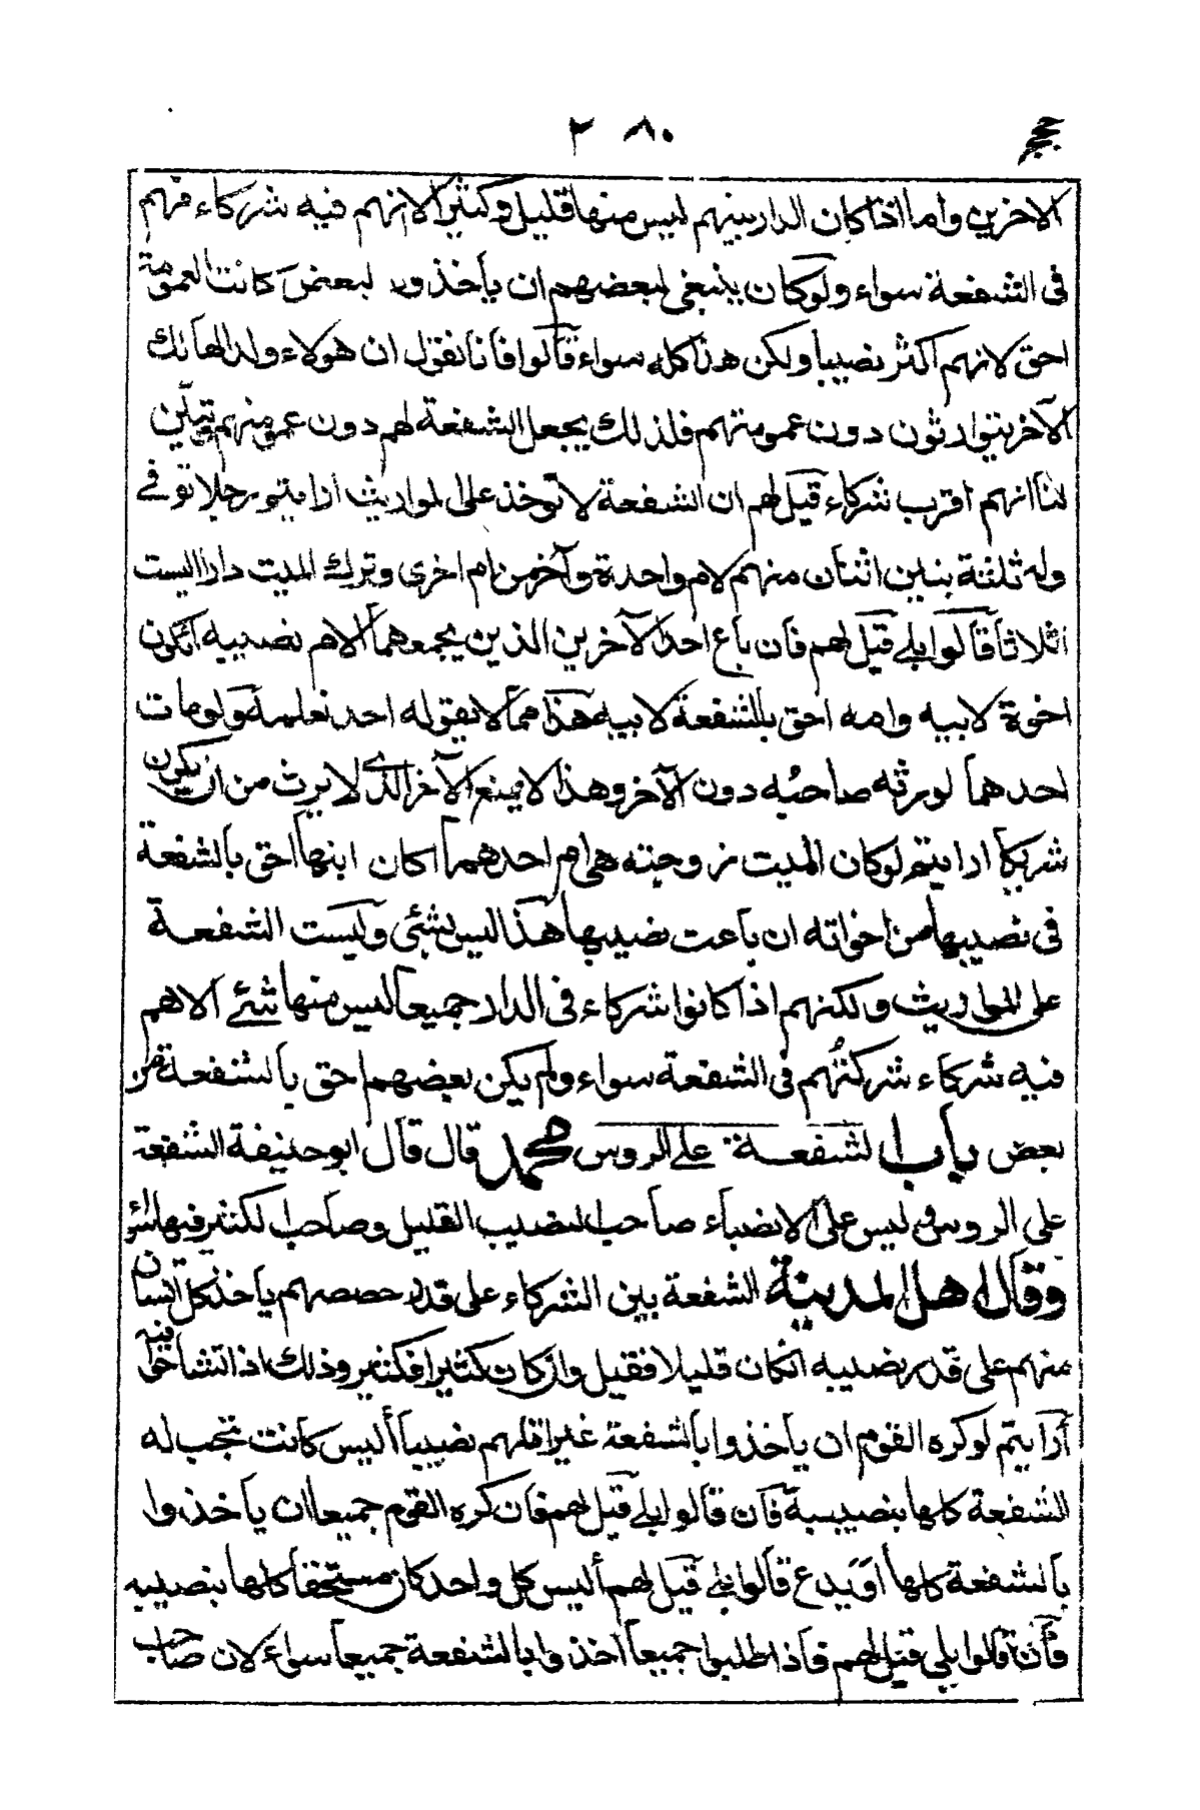 ٢٨٠
الاخرين واما اذا كان الدار بينهم ليس منها قليل وكثير الا انهم فيه شركاء فهم
فى الشفعة سواء ولو كان ينبغى لبعضهم ان يأخذ دون لبعض كانت العمومة
احق لانهم اكثر نصيبا ولكن هذا كله سواء قالوا فانا نقول ان هولاء ولد الهالك
الآخر يتوارثون دون عمومتهم فلذلك يجعل الشفعة لهم دون عمومتهم وتبين
لنا انهم اقرب شركاء قيل لهم ان الشفعة لا توخذ على المواريث ارايتم رجلا توفى
وله ثلثة بنين اثنان منهم لام واحدة وآخر من ام اخرى وترك الميت دارا اليست
اثلاثا قالوا بلى قيل لهم فان باع احد الآخرين الذين يجمعهما الام نصيبه ايكون
اخوة لابيه وامه احق بالشفعة لابيه هذا مما لا يقوله احد نعلمه ولو مات
احدهما لو رثه صاحبه دون الآخر وهذا لا يمنع الآخر الذى لا يرث من ان يكون
شريكا ارايتم لو كان الميت زوجته هى ام احدهم اكان ابنها احق بالشفعة
فى نصيبها من اخواته ان باعت نصيبها هذا ليس بشئ وليست الشفعة
على المواريث ولكنهم اذا كانوا شركاء فى الدار جميعا ليس منها شئ الا هم
فيه شركاء شركتهم فى الشفعة سواء ولم يكن بعضهم احق بالشفعة من
بعض باب الشفعة على الروس محمد قال قال ابو حنيفة الشفعة
على الروس ليس على الانضباء صاحب النصيب القليل وصاحب الكثير فيها سواء
وقال اهل المدينة الشفعة بين الشركاء على قدر حصصهم يأخذ كل انسان
منهم على قدر نصيبه انكان قليلا فقليل وان كان كثيرا فكثير وذلك اذا تشاحوا فيه
أرايتم لو كره القوم ان يأخذوا بالشفعة غير اقلهم نصيبا أليس كانت تجب له
الشفعة كلها بنصيبه فان قالوا بلى قيل لهم فان كره القوم جميعا ان يأخذوا
بالشفعة كلها او يدع قالوا بلى قيل لهم أليس كل واحد كان مستحقا كلها بنصيبه
فان قالوا بلى قيل لهم فاذا طلبوا جميعا أخذوا بالشفعة جميعا سواء لان صاحب